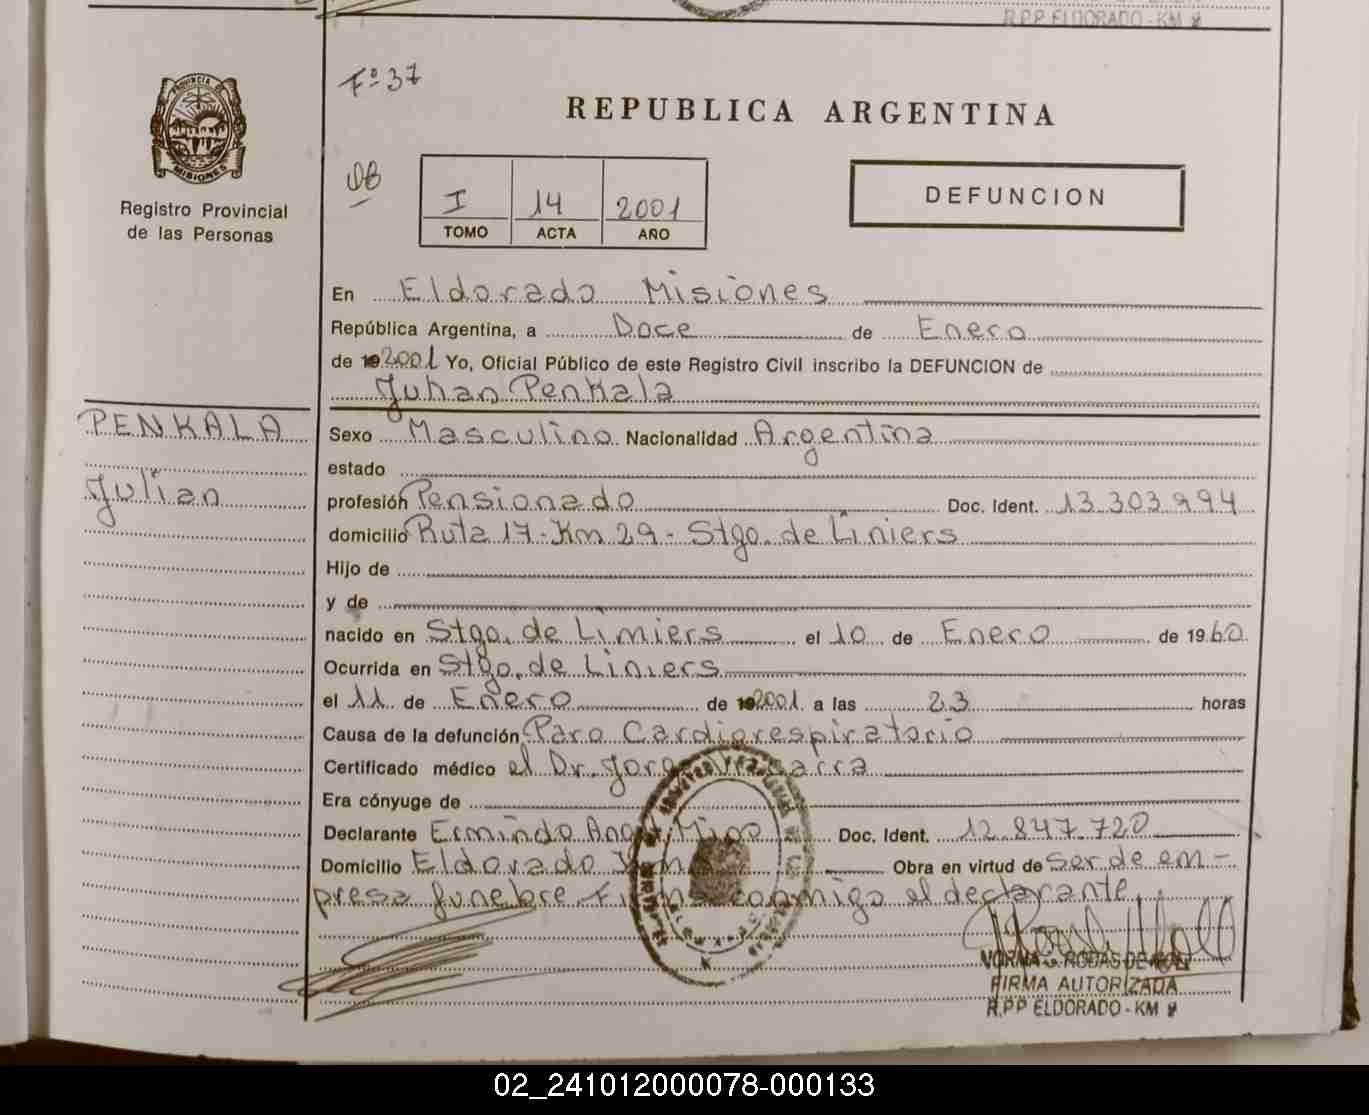 R.P.P ELDORADO - KM 9
Fº 37
REPUBLICA ARGENTINA
PROVINCIA DE
MISIONES
Registro Provincial
de las Personas
I 14 2001
TOMO ACTA AÑO
DEFUNCION
En Eldorado Misiones
República Argentina, a Doce de Enero
de 192001 Yo, Oficial Público de este Registro Civil inscribo la DEFUNCION de
Julian Penkala
PENKALA
Julian
Sexo Masculino Nacionalidad Argentina
estado
profesión Pensionado Doc. Ident. 13.303.994
domicilio Ruta 17 - Km 29 - Stgo. de Liniers
Hijo de
y de
nacido en Stgo. de Liniers el 10 de Enero de 1960
Ocurrida en Stgo. de Liniers
el 11 de Enero de 192001 a las 23 horas
Causa de la defunción Paro Cardiorespiratorio
Certificado médico el Dr. Jorge
Era cónyuge de
Declarante Ermindo Doc. Ident. 12.847.720
Domicilio Eldorado Km Obra en virtud de ser de em-
presa funebre conmigo el declarante
FIRMA AUTORIZADA
R.P.P ELDORADO - KM 9
02_241012000078-000133